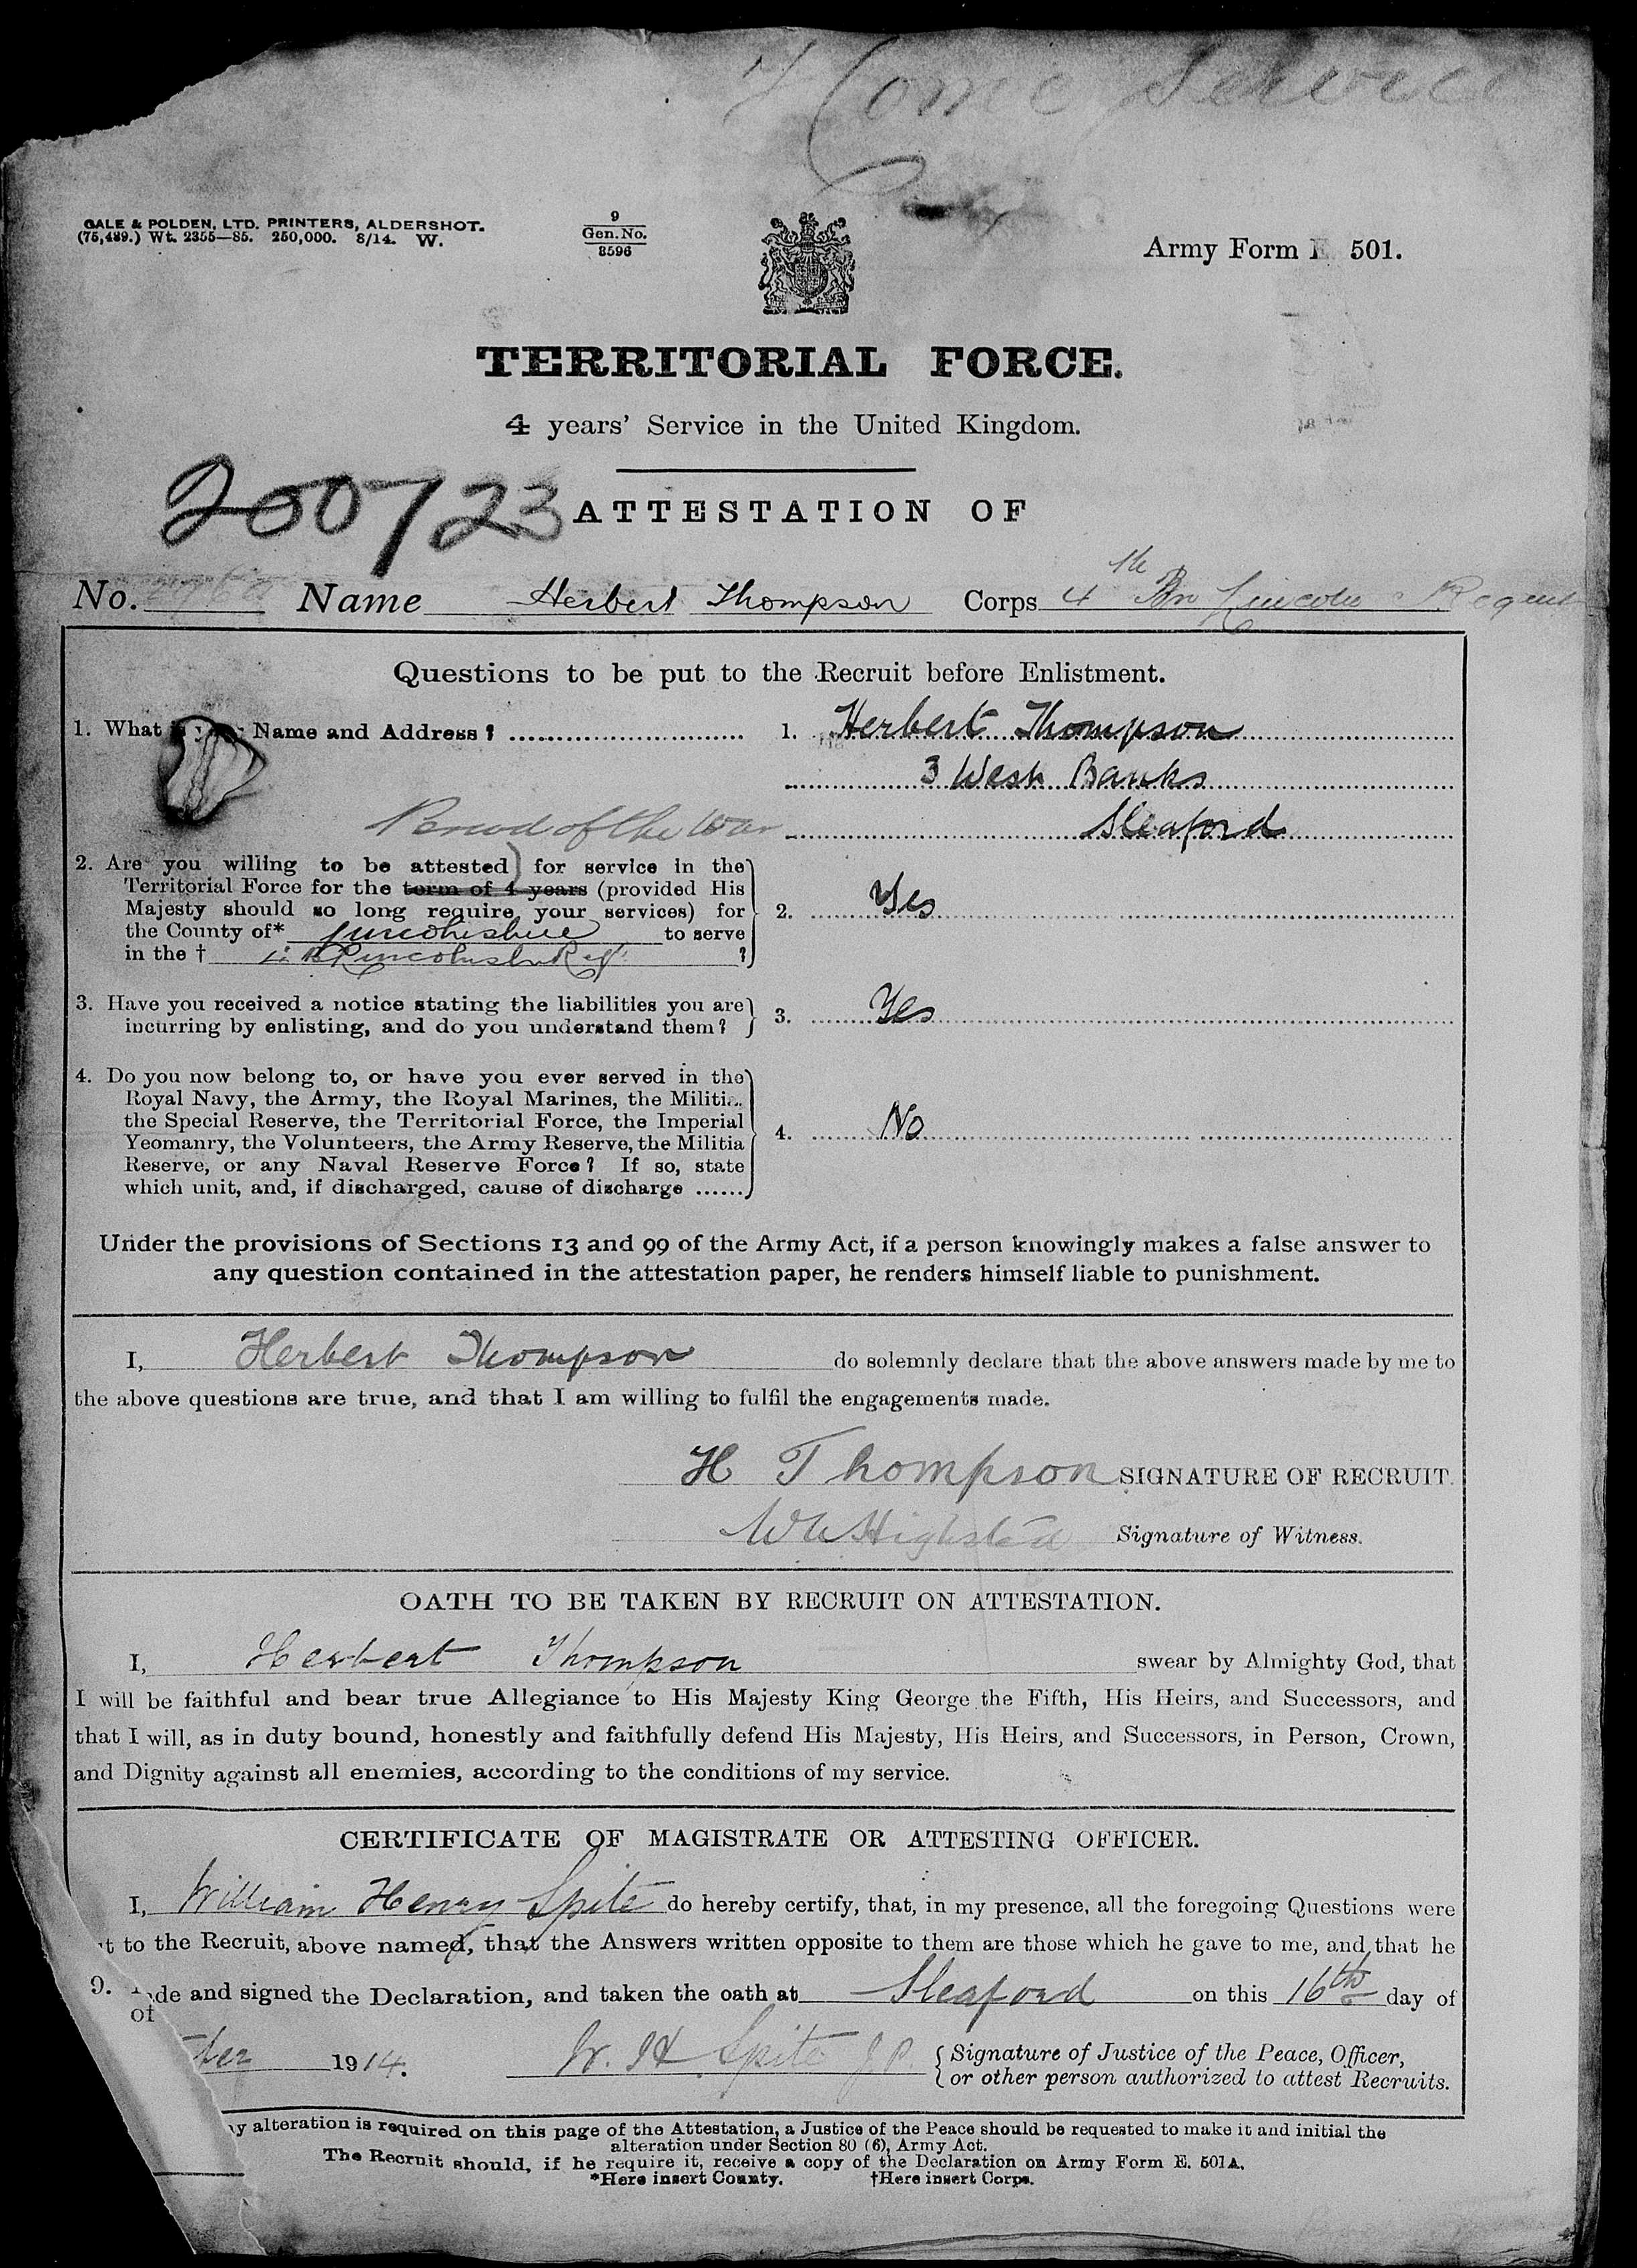 Home Service
GALE & POLDEN, LTD. PRINTERS, ALDERSHOT.
(75,489.) Wt. 2355—85. 250,000. 8/14. W.
9
Gen. No.
8596
Army Form E 501.
TERRITORIAL FORCE.
4 years' Service in the United Kingdom.
200723
ATTESTATION OF
No. Name Herbert Thompson Corps 4th Bn Lincoln Regent
Questions to be put to the Recruit before Enlistment.
1. What Name and Address? 1. Herbert Thompson
3 West Banks
Period of the War Sleaford
2. Are you willing to be attested) for service in the
Territorial Force for the term of 4 years (provided His
Majesty should so long require your services) for 2. Yes
the County of* Lincolnshire to serve
in the † Lincolnshr Regt ?
3. Have you received a notice stating the liabilities you are
incurring by enlisting, and do you understand them? 3. Yes
4. Do you now belong to, or have you ever served in the
Royal Navy, the Army, the Royal Marines, the Militia.
the Special Reserve, the Territorial Force, the Imperial
Yeomanry, the Volunteers, the Army Reserve, the Militia 4. No
Reserve, or any Naval Reserve Force? If so, state
which unit, and, if discharged, cause of discharge ......
Under the provisions of Sections 13 and 99 of the Army Act, if a person knowingly makes a false answer to
any question contained in the attestation paper, he renders himself liable to punishment.
I, Herbert Thompson do solemnly declare that the above answers made by me to
the above questions are true, and that I am willing to fulfil the engagements made.
H Thompson SIGNATURE OF RECRUIT.
Signature of Witness.
OATH TO BE TAKEN BY RECRUIT ON ATTESTATION.
I, Herbert Thompson swear by Almighty God, that
I will be faithful and bear true Allegiance to His Majesty King George the Fifth, His Heirs, and Successors, and
that I will, as in duty bound, honestly and faithfully defend His Majesty, His Heirs, and Successors, in Person, Crown,
and Dignity against all enemies, according to the conditions of my service.
CERTIFICATE OF MAGISTRATE OR ATTESTING OFFICER.
I, William Henry Spite do hereby certify, that, in my presence, all the foregoing Questions were
t to the Recruit, above named, that the Answers written opposite to them are those which he gave to me, and that he
9. de and signed the Declaration, and taken the oath at Sleaford on this 16th day of
of
ber 1914. W. H. Spite JP {Signature of Justice of the Peace, Officer,
or other person authorized to attest Recruits.
y alteration is required on this page of the Attestation, a Justice of the Peace should be requested to make it and initial the
alteration under Section 80 (6), Army Act.
The Recruit should, if he require it, receive a copy of the Declaration on Army Form E. 501A.
*Here insert County. †Here insert Corps.